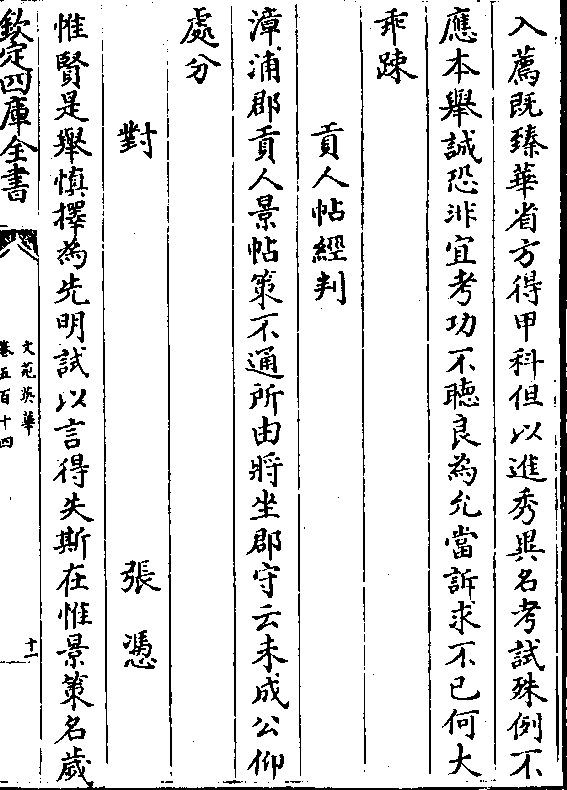 入薦既臻華省方得甲科但以進秀異名考試殊例不
應本舉誠恐非宜考功不聴良為允當訴求不已何大
乖踈
貢人帖經判
漳浦郡貢人景帖策不通所由將坐郡守云未成公仰
處分
對　張憑
惟賢是舉慎擇為先明試以言得失斯在惟景策名歲
欽定四庫全書
文苑英華
卷五百十四
十一